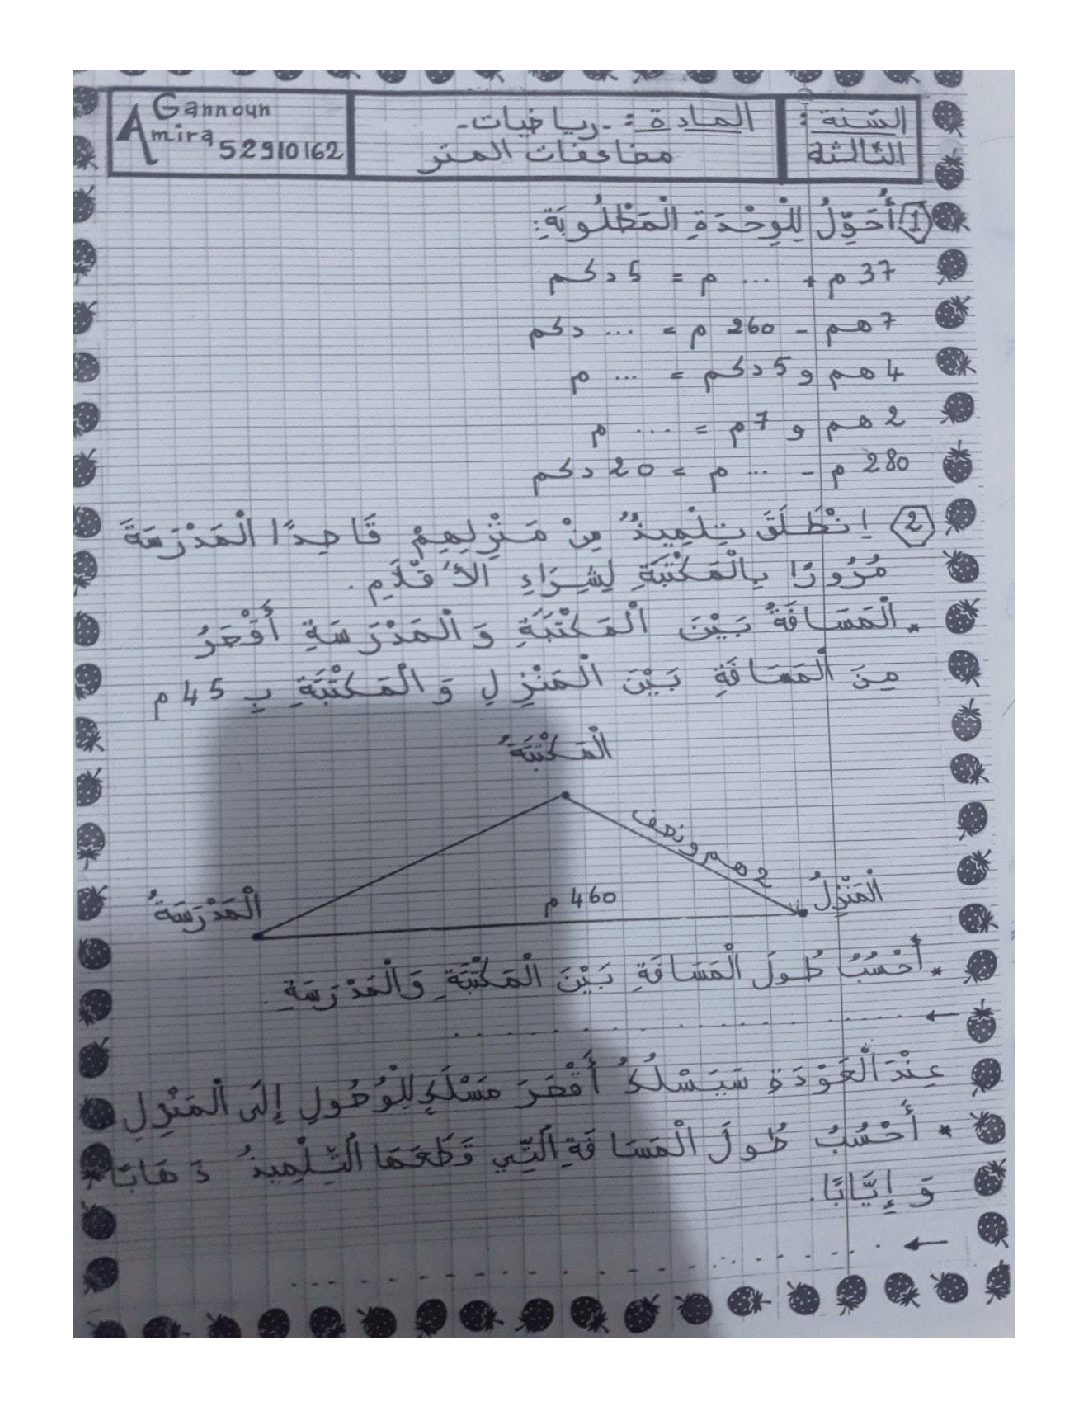 السّنة :
الثّالثة
المادة :- رياضيات -
مضاعفات المتر
Gannoun
Amira 52910162
1 أُحَوِّلُ لِلْوِحْدَةِ الْمَطْلُوبَةِ:
37 م + ... م = 5 دكم
7 هم - 260 م = ... دكم
4 هم و 5 دكم = ... م
2 هم و 7 م = ... م
280 م - ... م = 20 دكم
2 اِنْطَلَقَ تِلْمِيذٌ مِنْ مَنْزِلِهِمْ قَاصِدًا الْمَدْرَسَةَ
مُرُورًا بِالْمَكْتَبَةِ لِشِرَاءِ الأَقْلَامِ.
* الْمَسَافَةُ بَيْنَ الْمَكْتَبَةِ وَ الْمَدْرَسَةِ أَقْصَرُ
مِنَ الْمَسَافَةِ بَيْنَ الْمَنْزِلِ وَ الْمَكْتَبَةِ بِ 45 م
الْمَكْتَبَةُ
2 هم ونصف
الْمَنْزِلُ
460 م
الْمَدْرَسَةُ
* أَحْسُبُ طُولَ الْمَسَافَةِ بَيْنَ الْمَكْتَبَةِ وَالْمَدْرَسَةِ
عِنْدَ الْعَوْدَةِ سَيَسْلُكُ أَقْصَرَ مَسْلَكٍ لِلْوُصُولِ إِلَى الْمَنْزِلِ
* أَحْسُبُ طُولَ الْمَسَافَةِ الَّتِي قَطَعَهَا التِّلْمِيذُ ذَهَابًا
وَ إِيَّابًا.